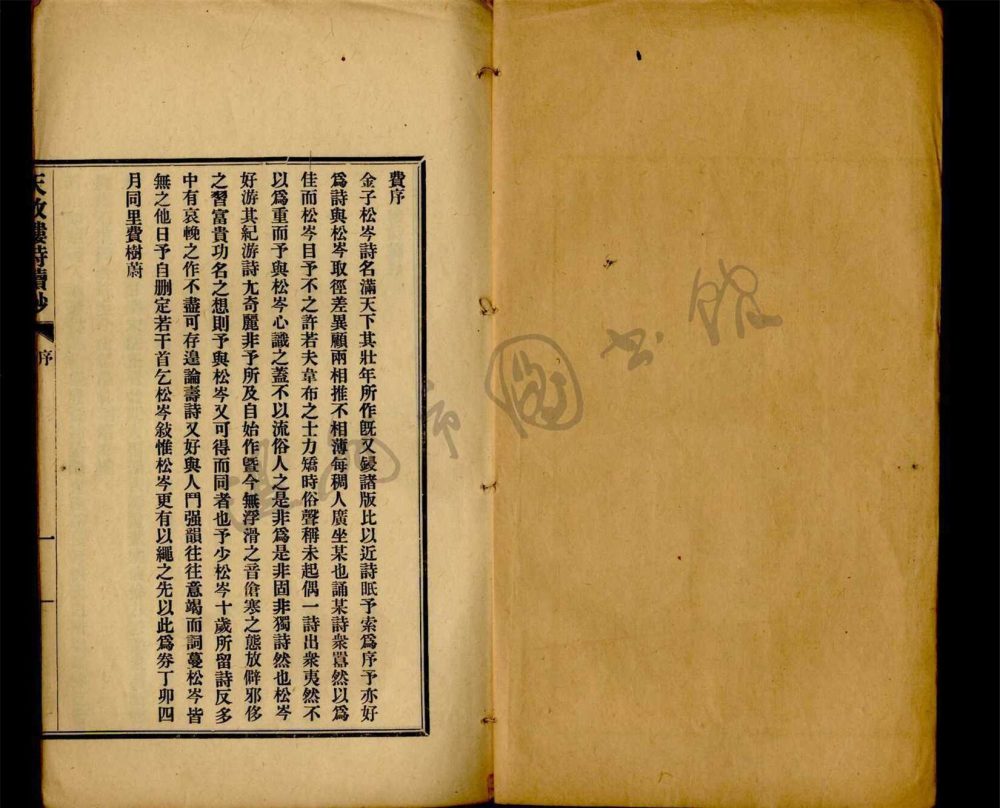 費序
金子松岑詩名滿天下其壯年所作旣又鋟諸版比以近詩眂予索爲序予亦好
爲詩與松岑取徑差異顧兩相推不相薄每稠人廣坐某也誦某詩衆囂然以爲
佳而松岑目予不之許若夫韋布之士力矯時俗聲稱未起偶一詩出衆夷然不
以爲重而予與松岑心識之蓋不以流俗人之是非爲是非固非獨詩然也松岑
好游其紀游詩尤奇麗非予所及自始作曁今無浮滑之音傖寒之態放僻邪侈
之習富貴功名之想則予與松岑又可得而同者也予少松岑十歲所留詩反多
中有哀輓之作不盡可存遑論壽詩又好與人鬥强韻往往意竭而詞蔓松岑皆
無之他日予自删定若干首乞松岑敍惟松岑更有以繩之先以此爲劵丁卯四
月同里費樹蔚
天放樓詩續鈔
序
一
市圖書館